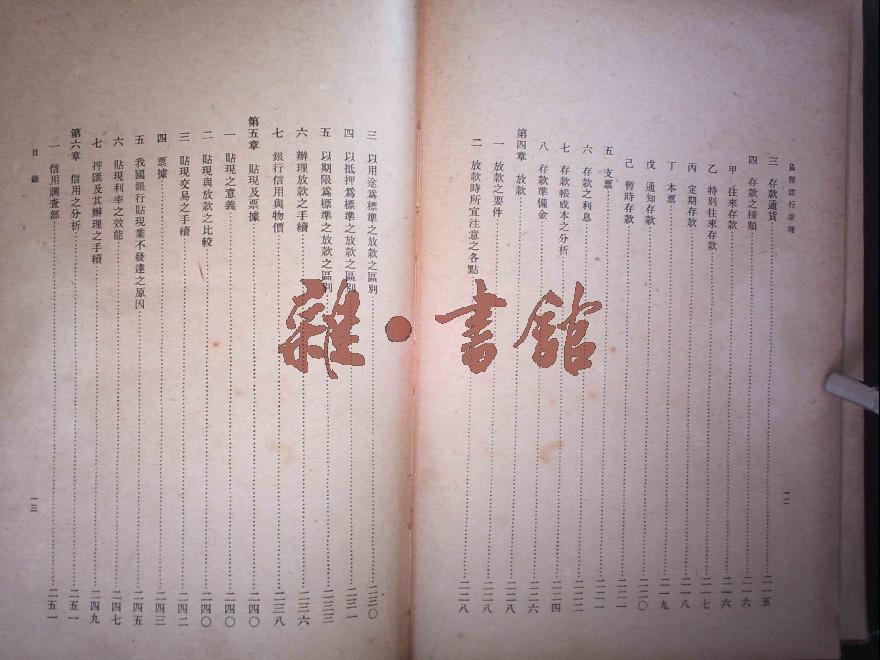 貨幣銀行原理
一二
三 存款通貨……二一五
四 存款之種類……二一六
甲 往來存款……二一六
乙 特別往來存款……二一七
丙 定期存款……二一八
丁 本票……二一九
戊 通知存款……二二〇
己 暫時存款……二二一
五 支票……二二一
六 存款之利息……二二三
七 存款帳成本之分析……二二四
八 存款準備金……二二六
第四章 放款……二二八
一 放款之要件……二二八
二 放款時所宜注意之各點……二二八
三 以用途爲標準之放款之區別……二三〇
四 以抵押爲標準之放款之區別……二三一
五 以期限爲標準之放款之區別……二三三
六 辦理放款之手續……二三六
七 銀行信用與物價……二三八
第五章 貼現及票據……二四〇
一 貼現之意義……二四〇
二 貼現與放款之比較……二四〇
三 貼現交易之手續……二四二
四 票據……二四三
五 我國銀行貼現業不發達之原因……二四五
六 貼現利率之效能……二四七
七 押匯及其辦理之手續……二四九
第六章 信用之分析……二五一
一 信用調查部……二五一
目錄
一三
雜·書館